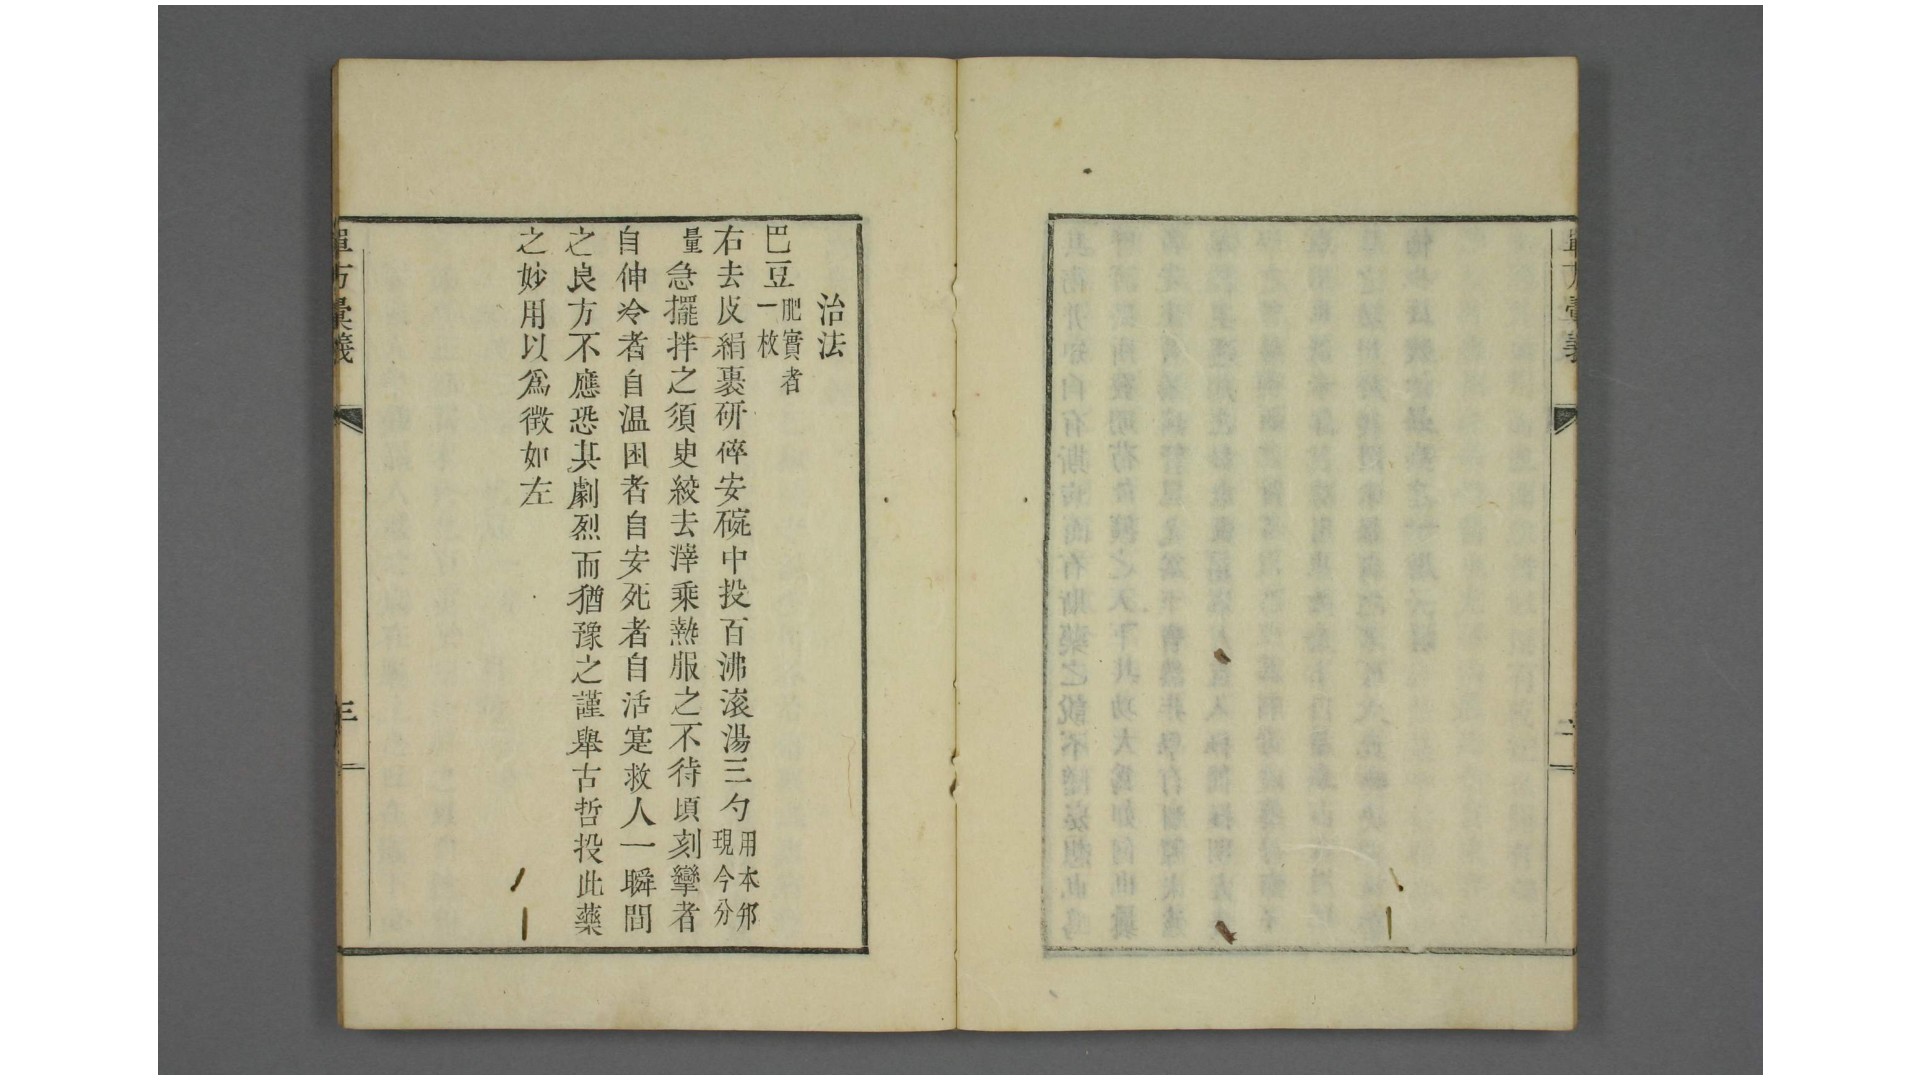 治法
巴豆肥實者一枚
右去皮絹裹研碎安碗中投百沸滚湯三勺用本邦現今分
量急擺拌之須臾絞去滓乘熱服之不待頃刻攣者
自伸冷者自温困者自安死者自活寔救人一瞬間
之良方不應恐其劇烈而猶豫之謹舉古哲投此藥
之妙用以爲徵如左
單方彙義
三